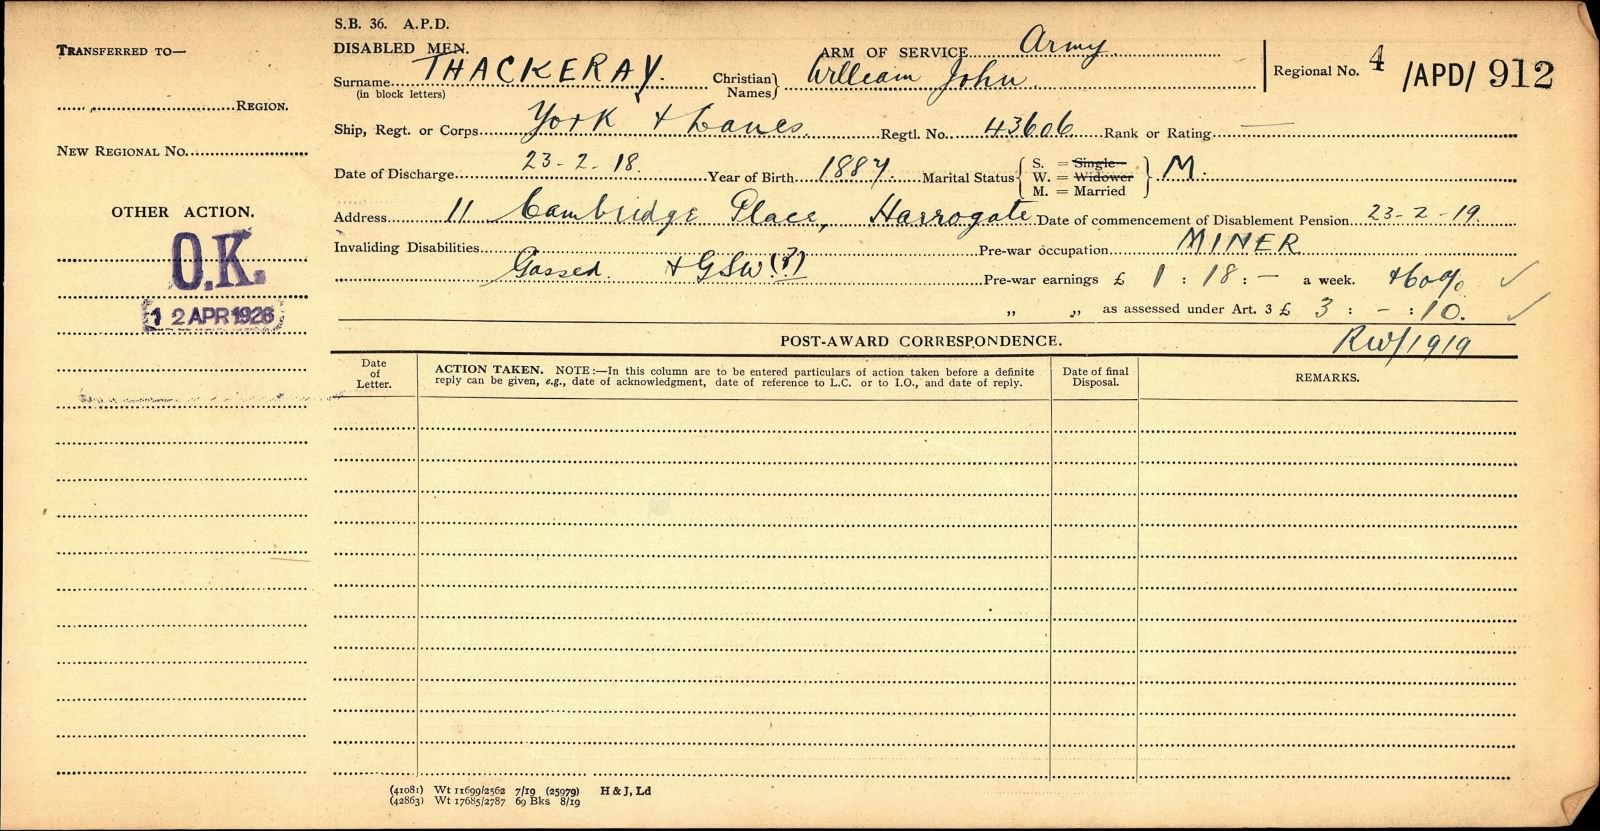 S.B. 36. A.P.D.
TRANSFERRED TO—
DISABLED MEN.
ARM OF SERVICE Army
Surname THACKERAY. Christian Names} William John
(in block letters)
Regional No. 4 /APD/ 912
REGION.
Ship, Regt. or Corps York & Lancs. Regtl. No. 43606 Rank or Rating —
NEW REGIONAL No.
Date of Discharge 23-2-18. Year of Birth 1887. Marital Status { S. = Single W. = Widower M. = Married } M.
OTHER ACTION.
Address 11 Cambridge Place, Harrogate Date of commencement of Disablement Pension 23-2-19.
O.K.
Invaliding Disabilities Pre-war occupation MINER
Gassed. + GSW (?) Pre-war earnings £ 1 : 18 : — a week. +60% ✓
12 APR 1926
" " as assessed under Art. 3 £ 3 : - : 10. ✓
POST-AWARD CORRESPONDENCE.
RW/1919
Date of Letter.
ACTION TAKEN. NOTE:—In this column are to be entered particulars of action taken before a definite
reply can be given, e.g., date of acknowledgment, date of reference to L.C. or to I.O., and date of reply.
Date of final Disposal.
REMARKS.
(41081) Wt 11699/2562 7/19 (25979) H & J, Ld
(42863) Wt 17685/2787 69 Bks 8/19